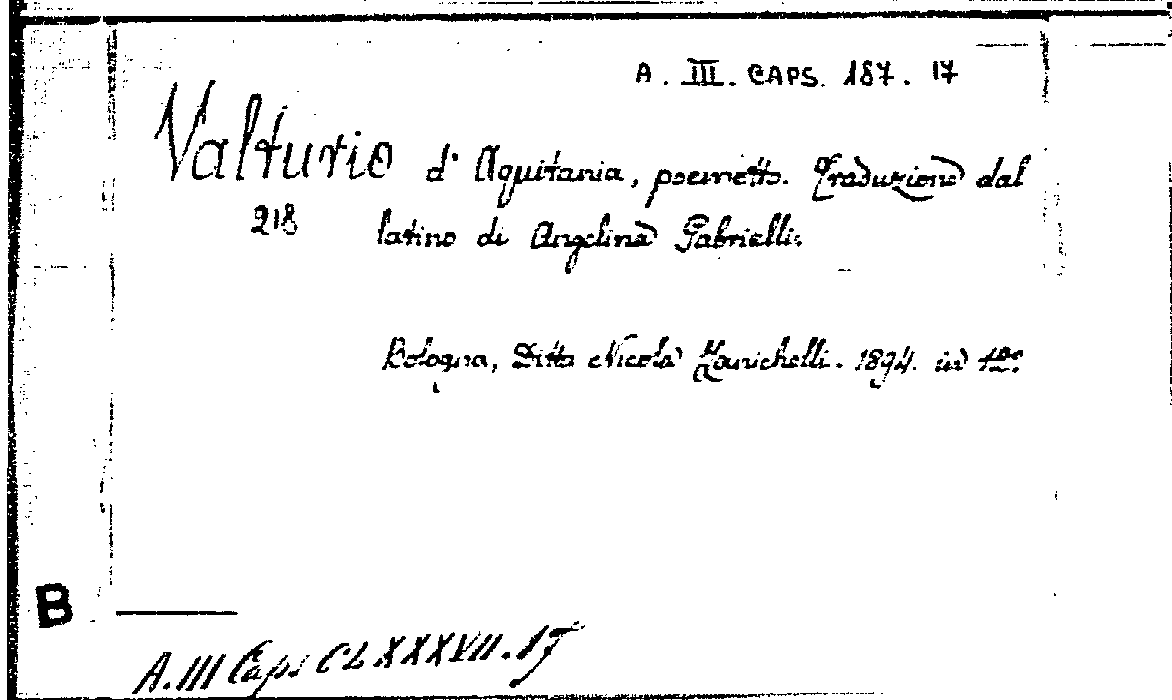 A. III. CAPS. 187. 17
Valturio d'Aquitania, poemetto. Traduzione dal
218 latino di Angelina Gabrielli.
Bologna, Ditta Nicola Zanichelli. 1894. in
B
A.III Caps CLXXXVII.17